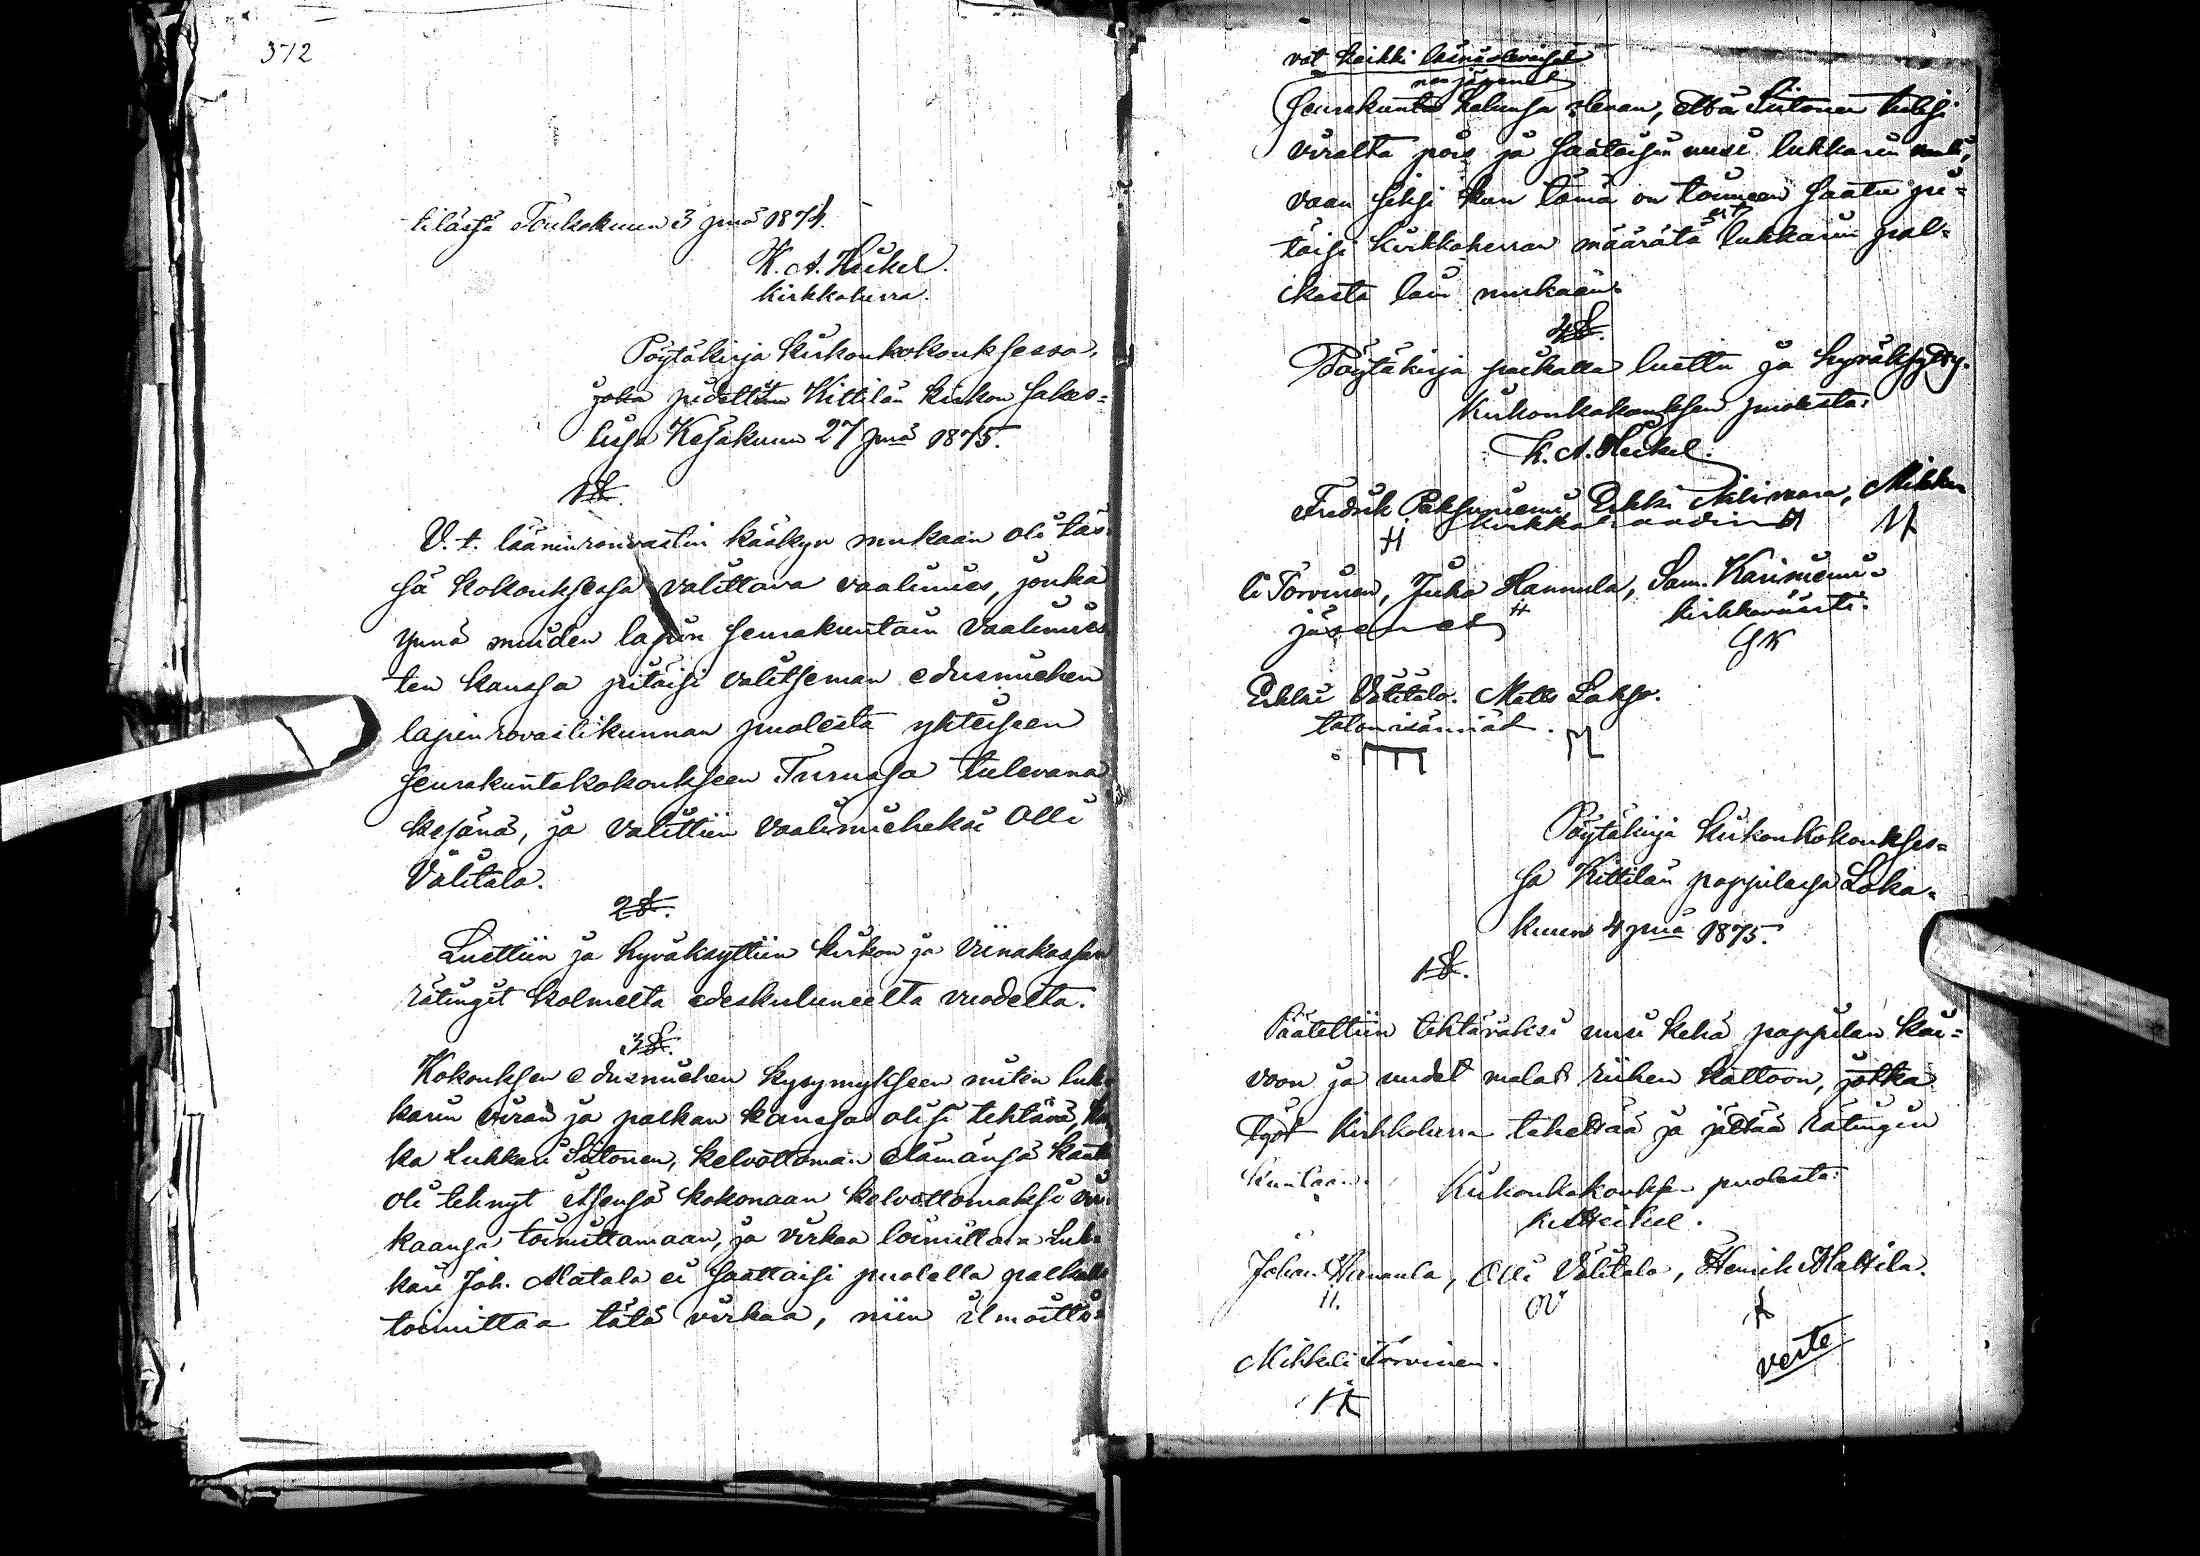 372
tilässä Toukokuun 3 pnä 1874.
K. A. Heikel.
kirkkoherra.
Pöytäkirja kirkonkokouksessa,
joka pidettiin Kittilän kirkon sakas=
tissa Kesäkuun 27 pnä 1875.
1 §.
V. t. lääninrovastin käskyn mukaan oli täs=
sä kokouksessa valittava vaalimies, jonka
ynnä muiden lapin seurakuntain vaalimies
ten kanssa pitäisi valitseman edusmiehen
lapin rovastikunnan puolesta yhteiseen
seurakuntakokoukseen Turussa tulevana
kesänä, ja valittiin vaalimieheksi Olli
Välitalo.
2 §.
Luettiin ja hyväksyttiin kirkon ja viinakassan
rätingit kolmelta edeskuluneelta vuodelta.
3 §.
Kokouksen edusmiehen kysymykseen miten luk=
karin viran ja palkan kanssa olisi tehtävä, kos
ka Lukkari Siitonen, kelvottoman elämänsä kautt
oli tehnyt itsensä kokonaan kelvottomaksi vir=
kaansa toimittamaan, ja virkaa toimittava Luk=
kari Joh. Alatalo ei saattaisi puolella palkalla
toimittaa tätä virkaa, niin ilmoitti=
vat kaikki läsnäolevaiset
jäsenet
seurakunta halunsa olevan, että Siitonen tulisi
viralta pois ja saataisiin uusi lukkarin vaali,
vaan siksi kun tämä on toimeen saatu pi=
täisi kirkkoherran määrätä lukkarin pal=
kasta lain mukaan.
4 §.
Pöytäkirja paikalla luettu ja hyväksytty.
Kirkonkokouksen puolesta:
K. A. Heikel.
Fredrik Paksuniemi, Erkki Niliwaara, Mikke
kirkkoraadin
li Torvinen, Juho Hannula, Sam. Kariniemi
jäsenet kirkkoväärti.
SK
Erkki Välitalo. Matts Lakso.
talonisännät.
Pöytäkirja kirkonkokoukses=
sa Kittilän pappilassa Loka=
kuun 4 pnä 1875.
1 §.
Päätettiin tehtäväksi uusi kehä pappilan kai=
voon ja uudet malat riihen kattoon, jotka
työt kirkkoherra tehettää ja jättää rätingin
kuntaan.
Kirkonkokouksen puolesta:
K A Heikel.
Johan Hannula, Olli Välitalo, Henrik Mattila.
H. OV
Mikkeli Torvinen.
verte